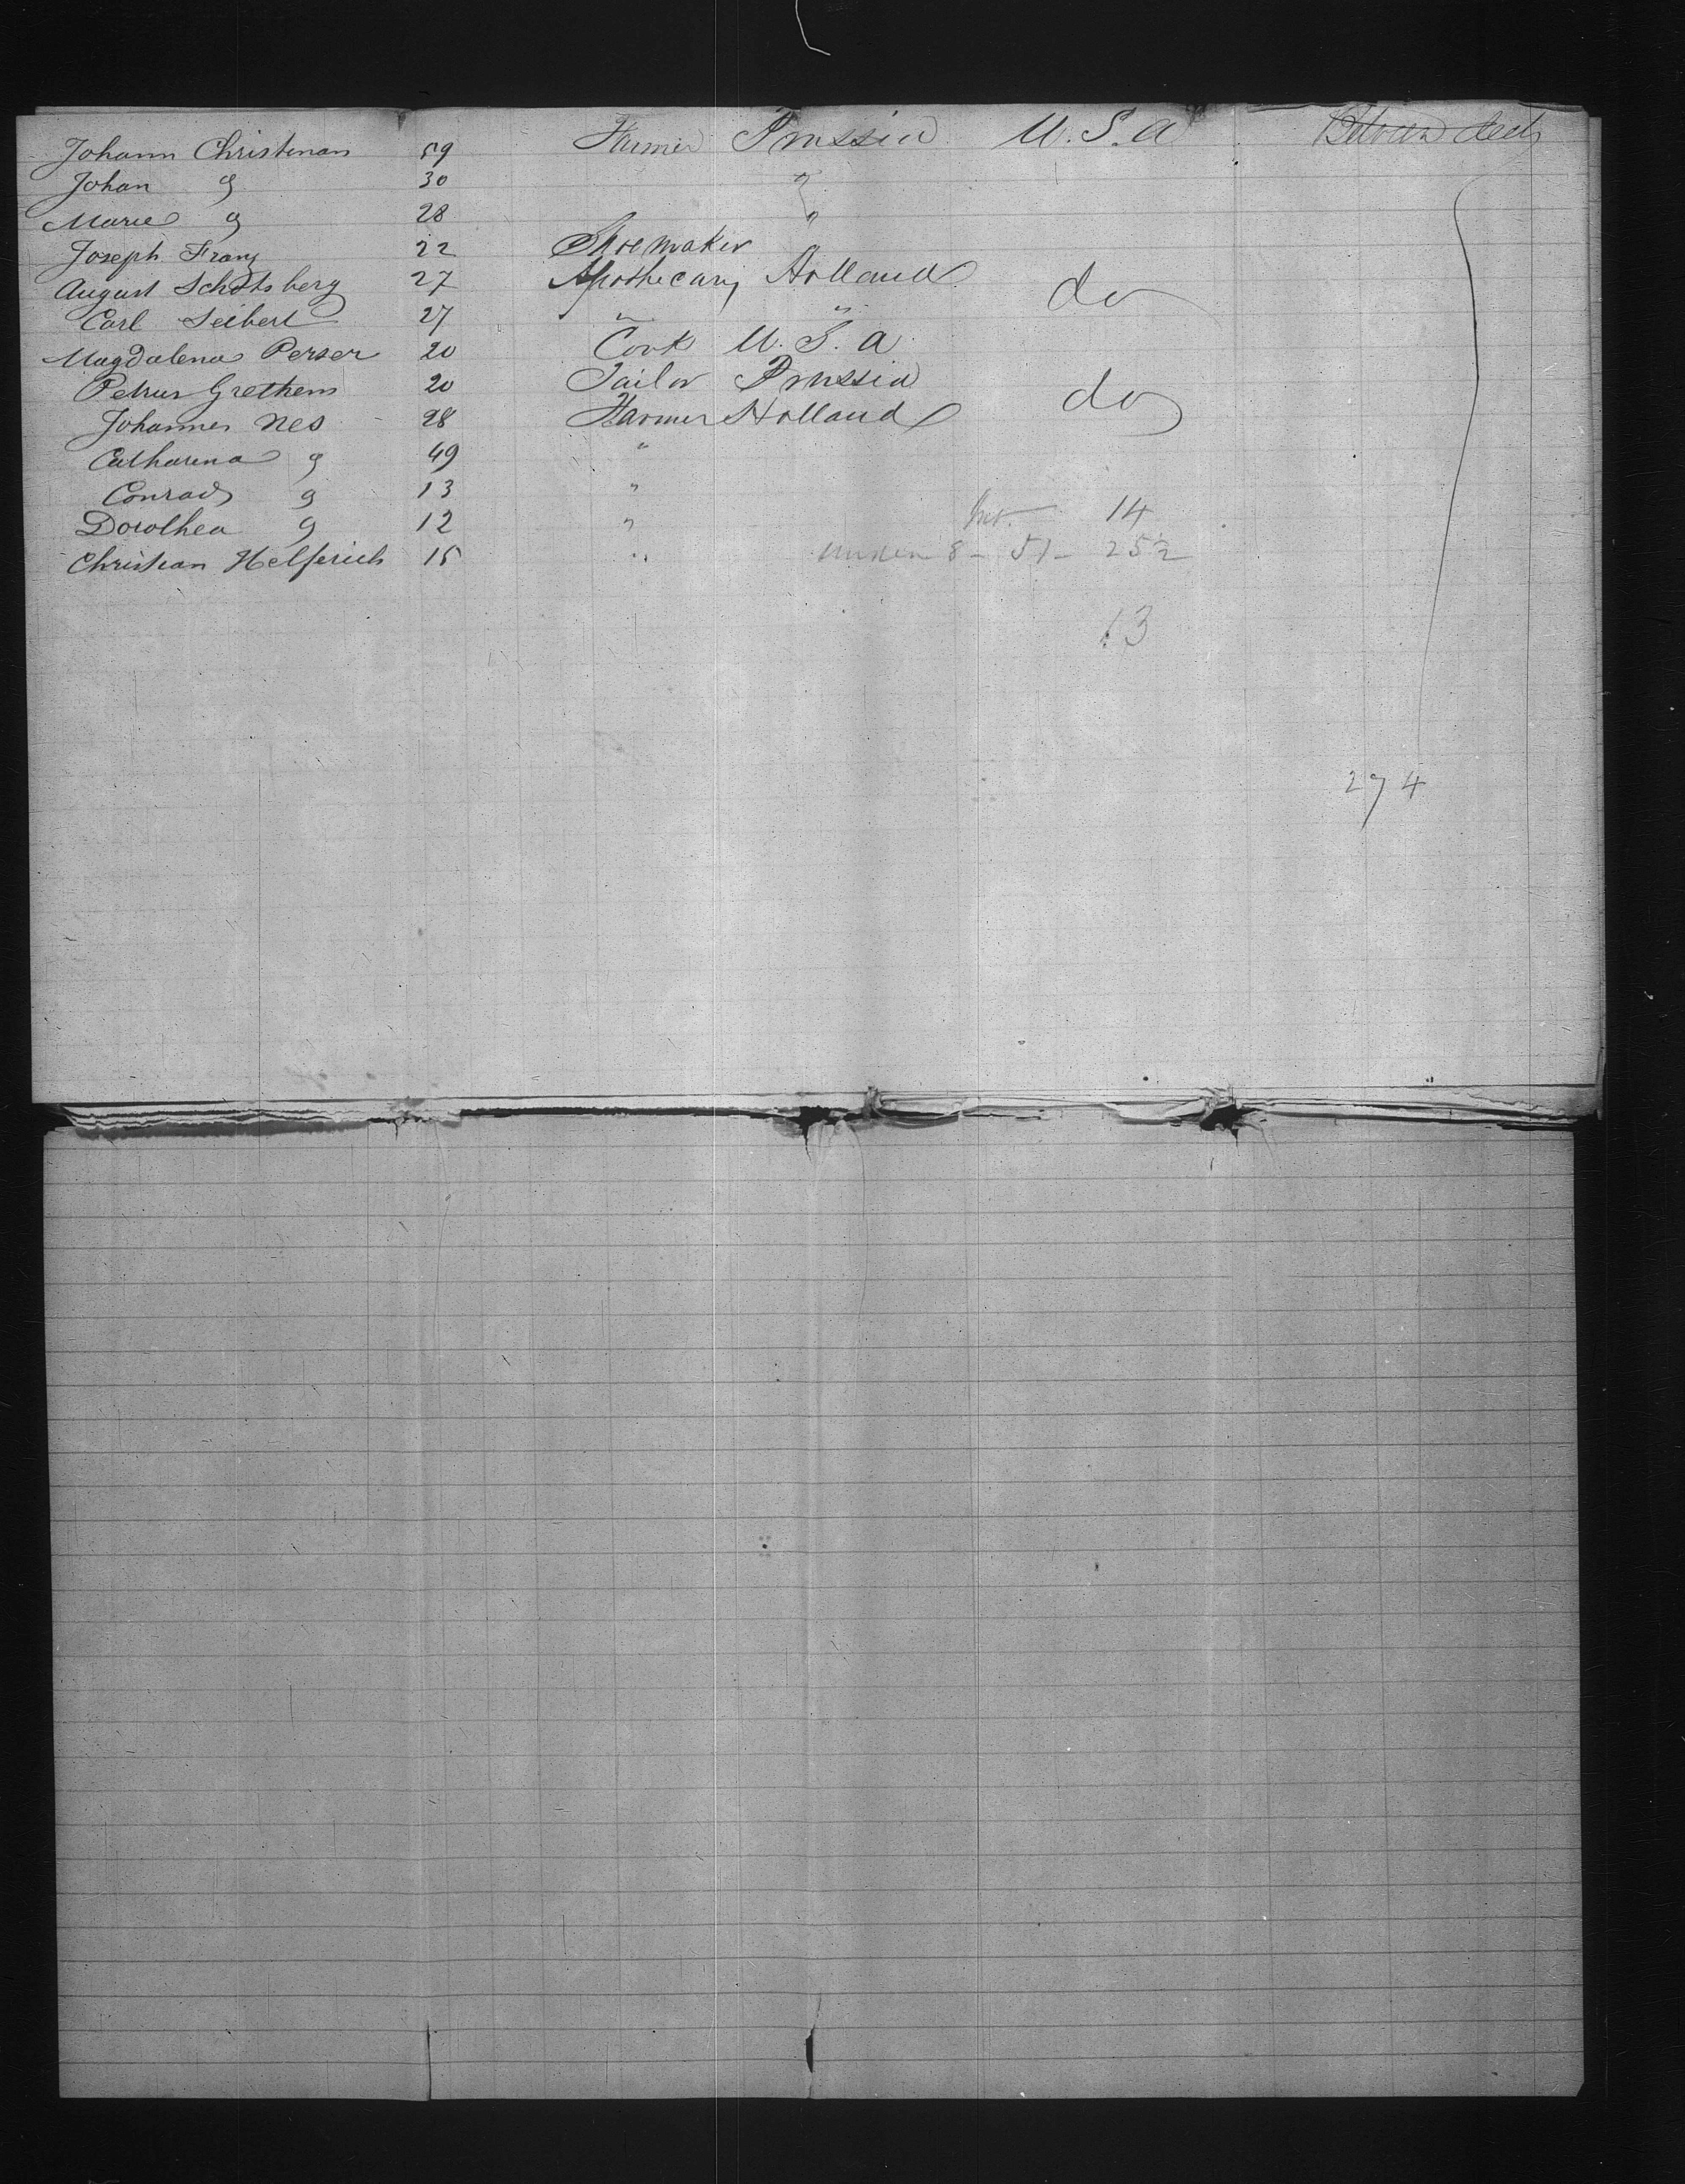 Johann Christman 59 Farmer Prussia U.S.A Between deck
Johan " 30 "
Marie " 28 "
Joseph Franz 22 Shoemaker "
August Schotsberg 27 Apothecary Holland do
Carl Seibert 27 " "
Magdalena Perser 20 Cook U.S.A
Petrus Grethem 20 Tailor Prussia do
Johannes Nes 28 Farmer Holland
Catharina " 49 "
Conrad " 13 "
Dorothea " 12 " 14
Christian Helferich 15 " under 8 - 51 - 252
13
274